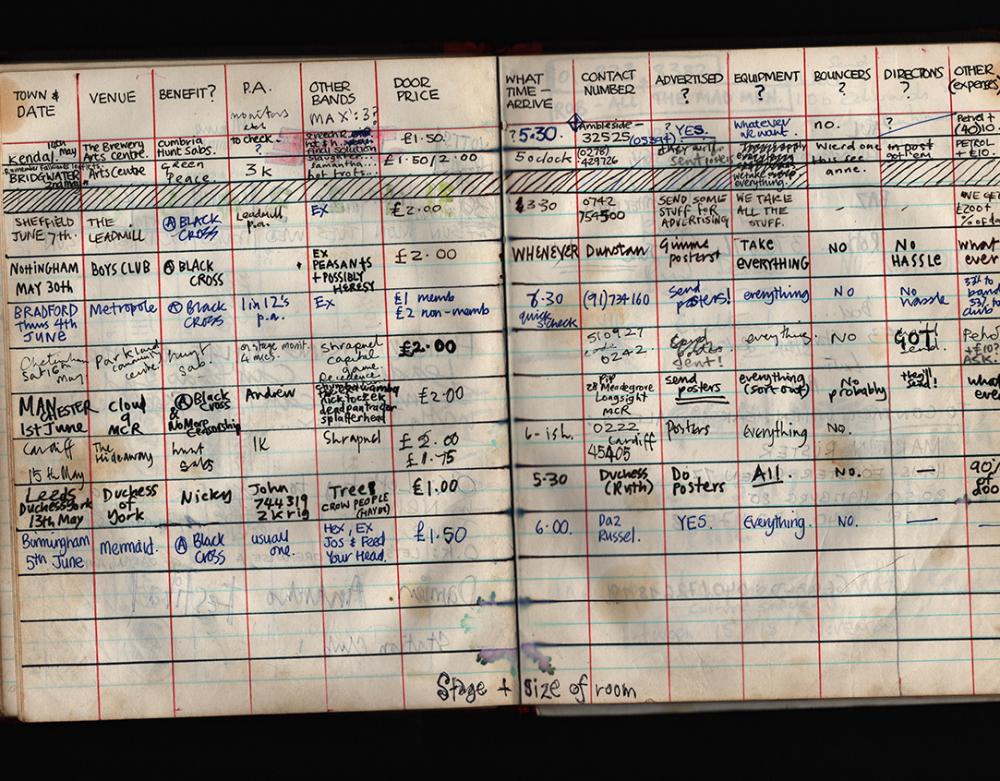 TOWN & DATE
VENUE
BENEFIT?
P.A.
monitors
OTHER BANDS
MAX: 3?
DOOR PRICE
WHAT TIME - ARRIVE
CONTACT NUMBER
ADVERTISED ?
EQUIPMENT ?
BOUNCERS ?
DIRECTIONS ?
OTHER (expenses)
Kendal. May
The Brewery Arts Centre.
Cumbria Hunt Sabs.
to check. ?
£1.50.
? 5.30.
Ambleside - 32525 (05394)
? YES.
whatever we want.
no.
?
Petrol + (40)10.
BRIDGWATER 2nd May
Arts Centre
Green Peace.
3K
Slaughter
Samantha
hot trots..
£1.50/2.00
5 o clock
(0278) 429726
everything.
Wierd one this see anne.
in post
PETROL + £10.
SHEFFIELD JUNE 7th.
THE LEADMILL
Ⓐ BLACK CROSS
Leadmill p.a.
EX
£2.00
3.30
0742 754500
SEND SOME STUFF FOR ADVERTISING
WE TAKE ALL THE STUFF.
-
-
WE GET £200+ % of d
NOTTINGHAM MAY 30th
BOYS CLUB
Ⓐ BLACK CROSS
EX
PEASANTS
+ POSSIBLY HERESY
£2.00
WHENEVER
Dunstan
Gimme posters!
TAKE EVERYTHING
NO
NO HASSLE
what ever
BRADFORD thurs 4th JUNE
Metropole
Ⓐ Black CROSS
1 in 12's p.a.
EX
£1 memb
£2 non-memb
6.30
quick s.check
(91) 734160
Send posters!
everything
NO
No hassle
33% to band
club
Cheltenham Sat 16th May
Parkland community centre
hunt sab.
on stage monit. 4 mics.
shrapnel
capital
game
Decadence
£2.00
510927
0242
sent!
everything.
NO
GOT!
send.
ASK.
MANCHESTER 1st June
cloud 9 MCR
Ⓐ Black CROSS & No More Censorship
Andrew
chumbawamba
nick toczek
dead pan tractor
splatterhead
£2.00
Pip
28 Mendegrove
Longsight
MCR
send posters
everything (sort out)
No probably
they'll send!
what ever
Cardiff 15th May
The Hideaway
hunt sabs
1K
Shrapnel
£2.00
£1.75
6-ish.
0222 Cardiff 45405
Posters
Everything
No.
Leeds Duchess York 13th May
Duchess of York
Nicky
John 744319 2K rig
Trees
CROW PEOPLE (MAYBE)
£1.00
5.30
Duchess (Ruth)
Do posters
All.
No.
—
90% of doo
Birmingham 5th June
Mermaid.
Ⓐ Black Cross
usual one.
Hex, EX
Jos & Feed Your Head.
£1.50
6:00.
Daz Russel.
YES.
Everything.
NO.
—
—
Stage + Size of room